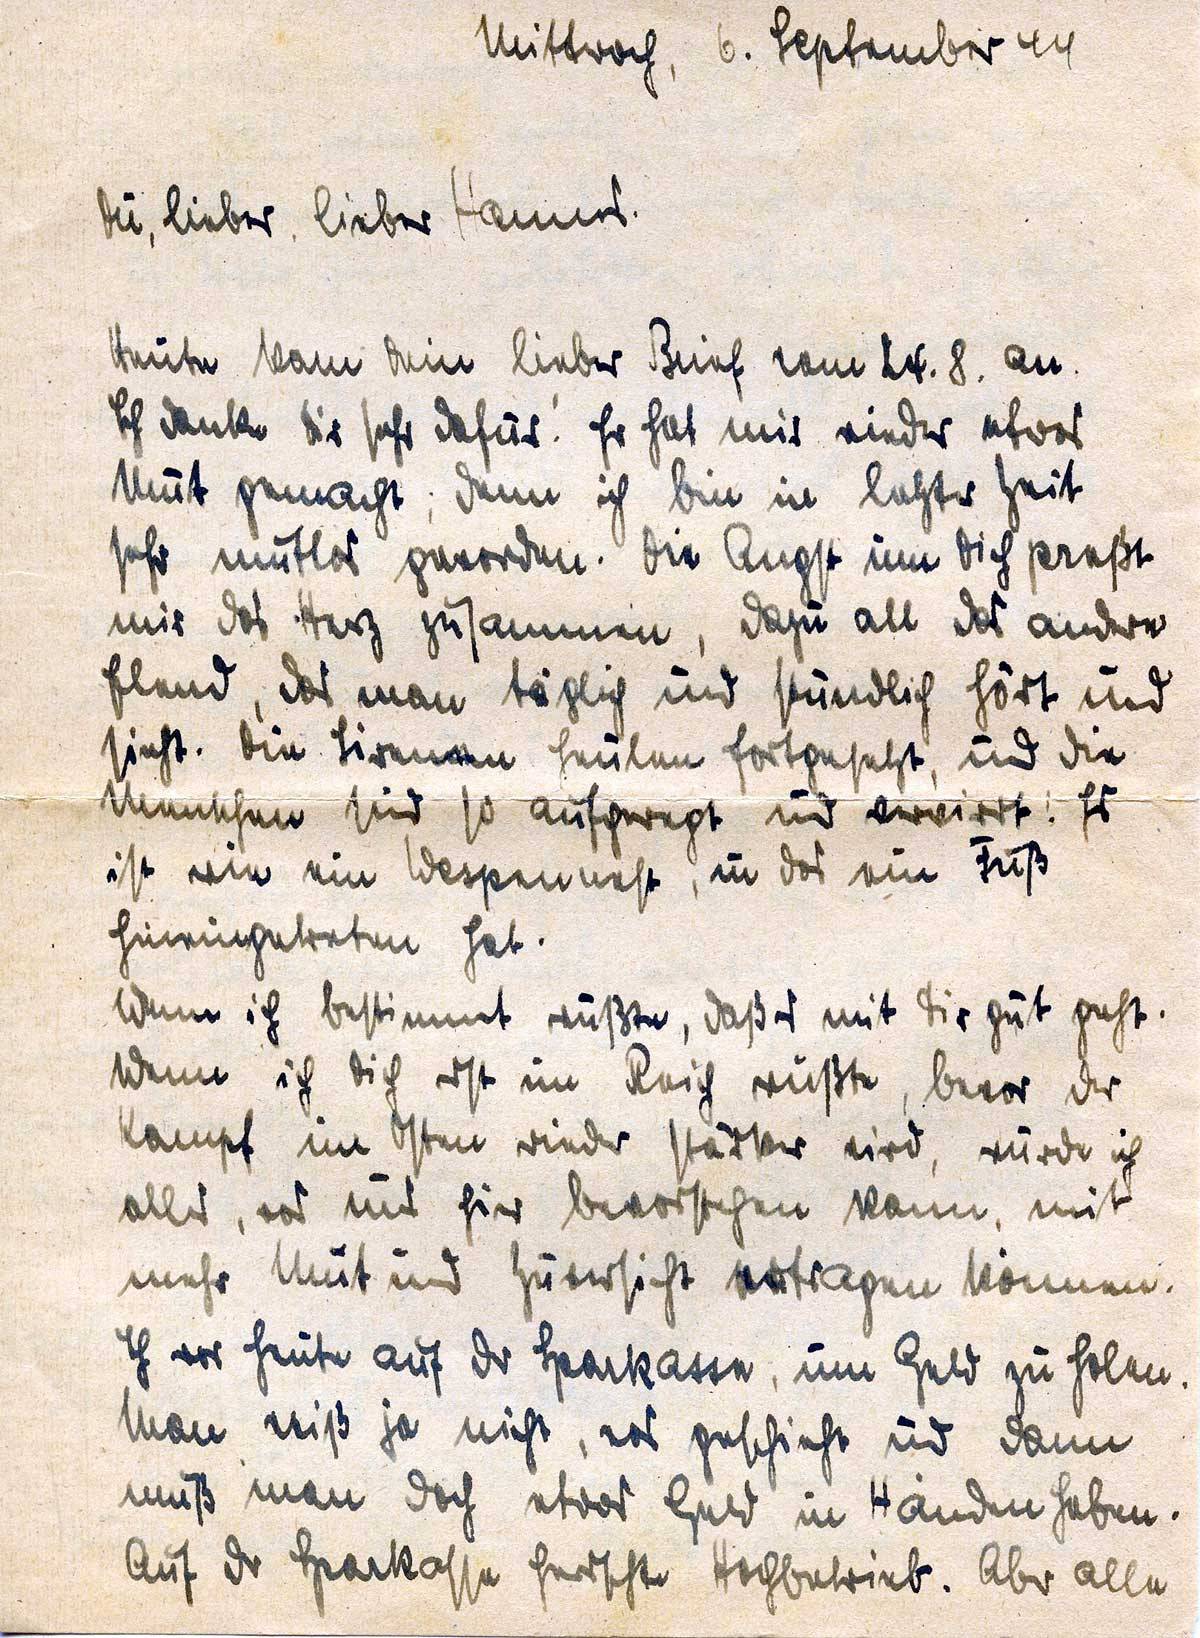 Mittwoch, 6. September 44
Du, lieber, lieber Hannes.
Heute kam dein lieber Brief vom 24. 8. an.
Ich danke dir sehr dafür! Er hat mir wieder etwas
Mut gemacht; denn ich bin in letzter Zeit
sehr mutlos geworden. Die Angst um dich preßt
mir das Herz zusammen, dazu all das andere
Elend, das man täglich und stündlich hört und
sieht. Die Sirenen heulen fortgesetzt, und die
Menschen sind so aufgeregt und verwirrt! Es
ist wie ein Wespennest, in das ein Fuß
hineingetreten hat.
Wenn ich bestimmt wüßte, daß es mit dir gut geht.
Wenn ich dich erst im Reich wüßte, bevor der
Kampf im Osten wieder stärker wird, würde ich
alles, was uns hier bevorstehen kann, mit
mehr Mut und Zuversicht ertragen können.
Ich war heute auf der Sparkasse, um Geld zu holen.
Man weiß ja nicht, was geschieht und dann
muß man doch etwas Geld in Händen haben.
Auf der Sparkasse herrschte Hochbetrieb. Aber alle